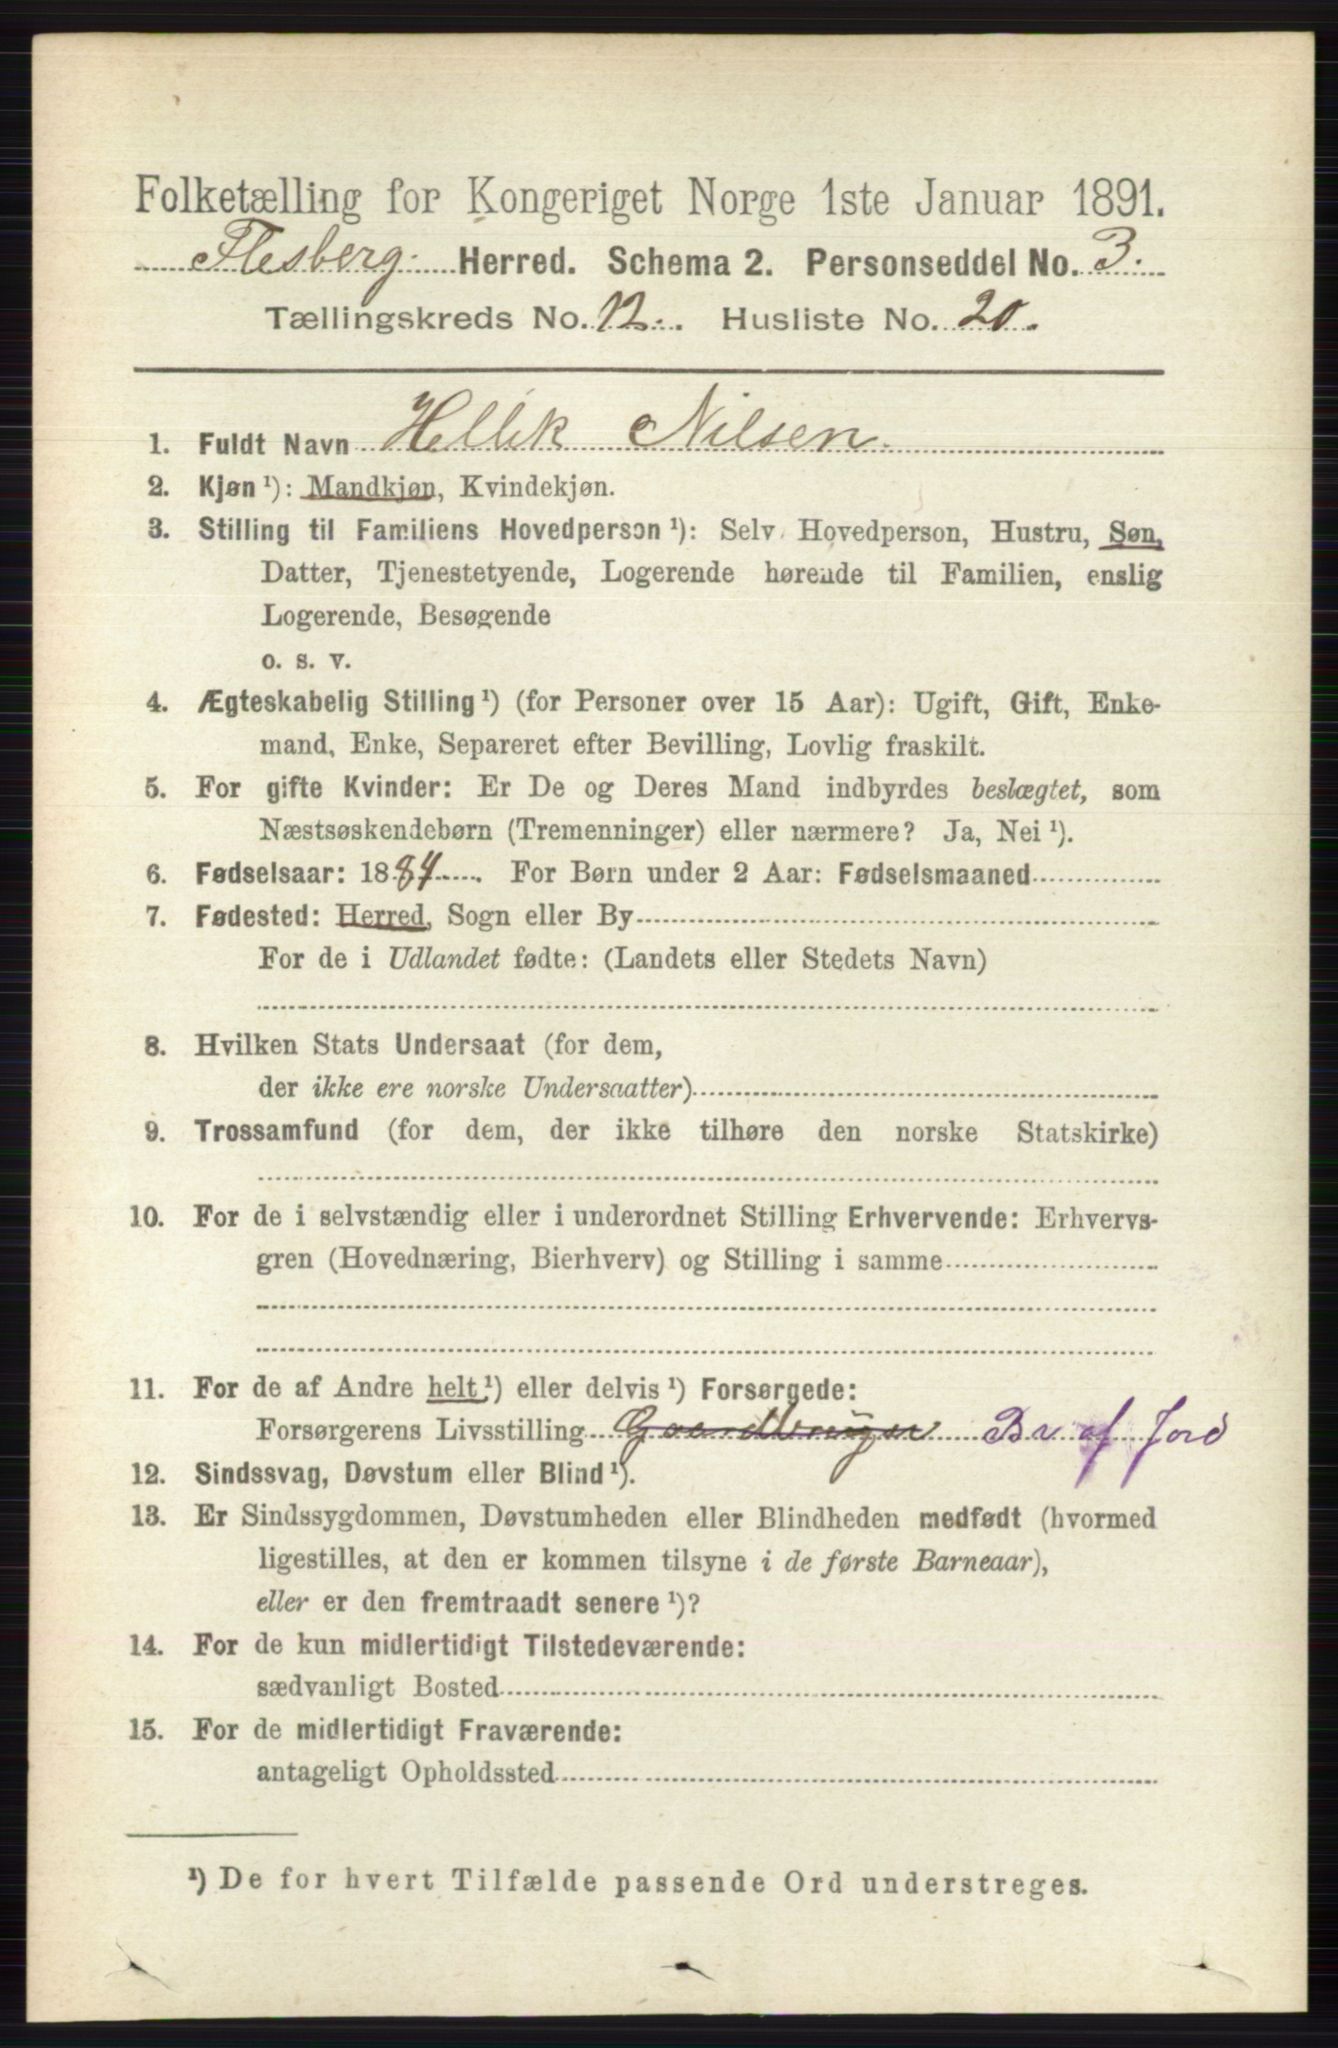 Folketælling for Kongeriget Norge 1ste Januar 1891.
Flesberg Herred. Schema 2. Personseddel No. 3.
Tællingskreds No. 12. Husliste No. 20.
1. Fuldt Navn Hellik Nilsen
2. Kjøn ¹): Mandkjøn, Kvindekjøn.
3. Stilling til Familiens Hovedperson ¹): Selv Hovedperson, Hustru, Søn,
Datter, Tjenestetyende, Logerende hørende til Familien, enslig
Logerende, Besøgende
o. s. v.
4. Ægteskabelig Stilling ¹) (for Personer over 15 Aar): Ugift, Gift, Enke-
mand, Enke, Separeret efter Bevilling, Lovlig fraskilt.
5. For gifte Kvinder: Er De og Deres Mand indbyrdes beslægtet, som
Næstsøskendebørn (Tremenninger) eller nærmere? Ja, Nei ¹).
6. Fødselsaar: 1884. For Børn under 2 Aar: Fødselsmaaned
7. Fødested: Herred, Sogn eller By
For de i Udlandet fødte: (Landets eller Stedets Navn)
8. Hvilken Stats Undersaat (for dem,
der ikke ere norske Undersaatter)
9. Trossamfund (for dem, der ikke tilhøre den norske Statskirke)
10. For de i selvstændig eller i underordnet Stilling Erhvervende: Erhvervs-
gren (Hovednæring, Bierhverv) og Stilling i samme
11. For de af Andre helt ¹) eller delvis ¹) Forsørgede:
Forsørgerens Livsstilling Gaardbruger Br af Jord
12. Sindssvag, Døvstum eller Blind ¹).
13. Er Sindssygdommen, Døvstumheden eller Blindheden medfødt (hvormed
ligestilles, at den er kommen tilsyne i de første Barneaar),
eller er den fremtraadt senere ¹)?
14. For de kun midlertidigt Tilstedeværende:
sædvanligt Bosted
15. For de midlertidigt Fraværende:
antageligt Opholdssted
¹) De for hvert Tilfælde passende Ord understreges.